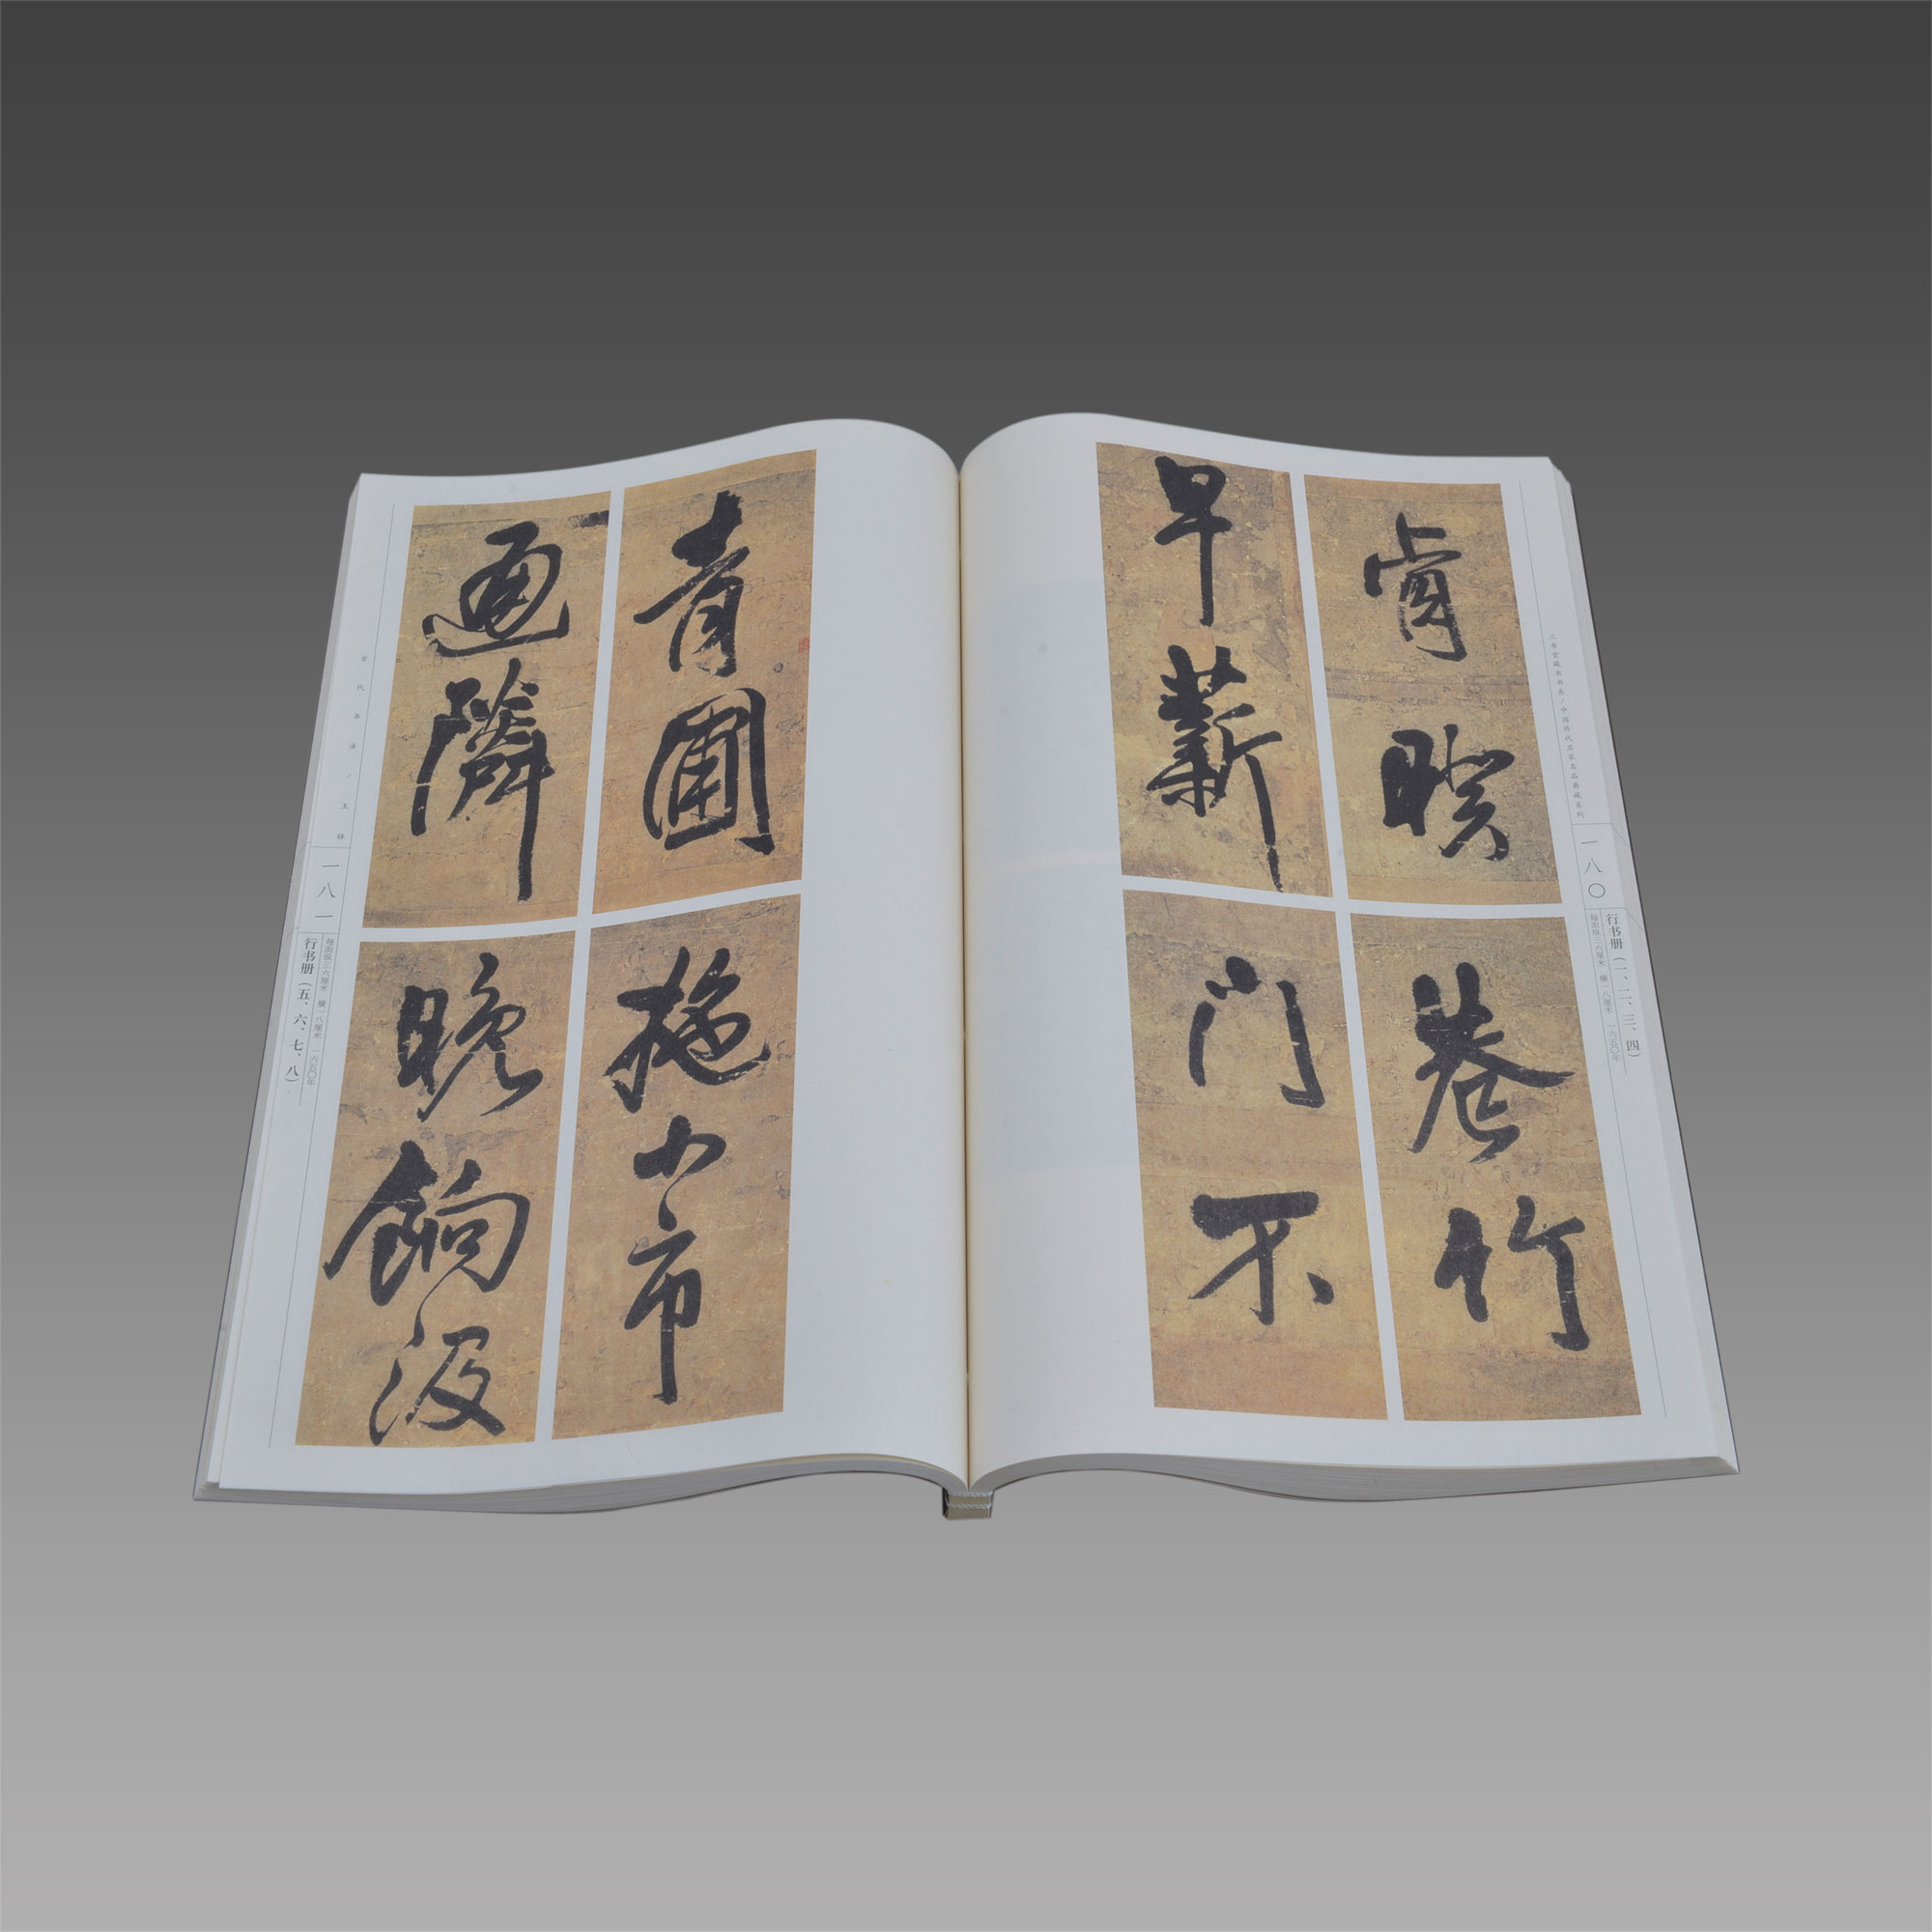 三希堂藏书书系/中国历代名家名品典藏系列
一八〇
行书册（一、二、三、四）
每面纵三六厘米 横一八厘米 一六五〇年
暌
巷竹
早薪
门不
青圃
拖小市
画隣
晚餉汲
古代书法/王铎
一八一
行书册（五、六、七、八）
每面纵三六厘米 横一八厘米 一六五〇年